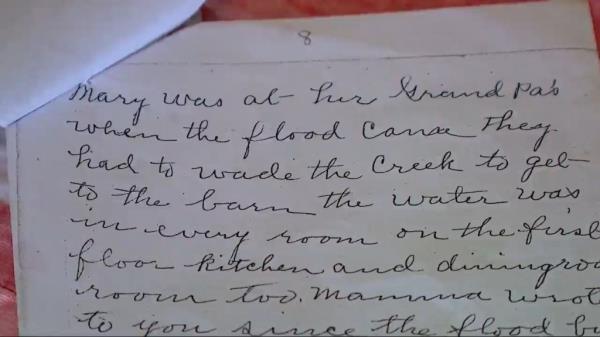 8
Mary was at her Grand Pa's
when the flood came They
had to wade the Creek to get
to the barn the water was
in every room on the first
floor kitchen and diningroo
room too. Mamma wrot
to you since the flood bu